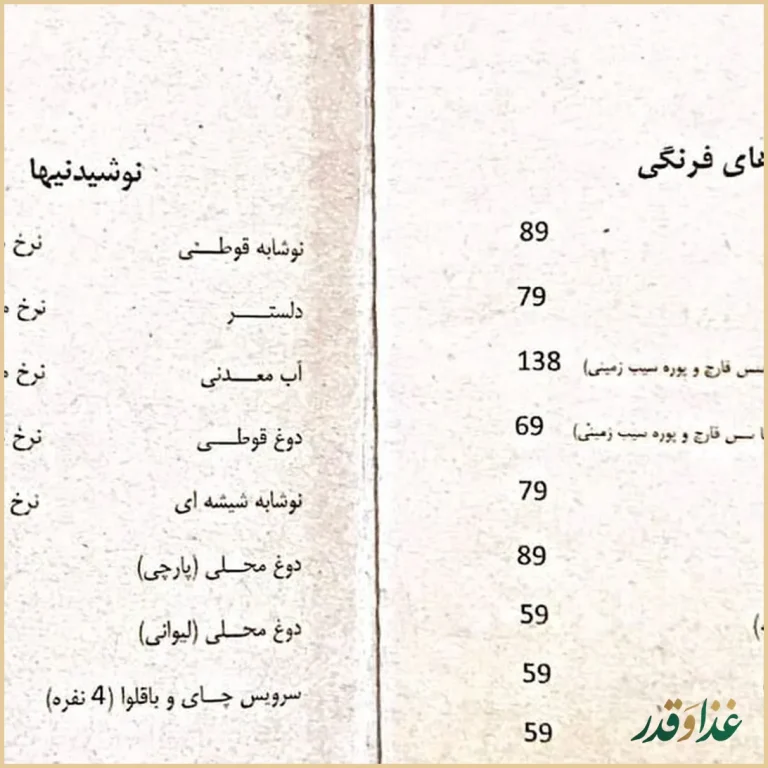 های فرنگی
89
79
138 سس قارچ و پوره سیب زمینی)
69 با سس قارچ و پوره سیب زمینی)
79
89
59
59
59
نوشیدنیها
نوشابه قوطـــی نرخ
دلستـــــر نرخ
آب معــــدنی نرخ
دوغ قوطـــی نرخ
نوشابه شیشه ای نرخ
دوغ محـــلی (پارچی)
دوغ محـــلی (لیوانی)
سرویس چـــای و باقلوا (4 نفره)
غذا و قدر